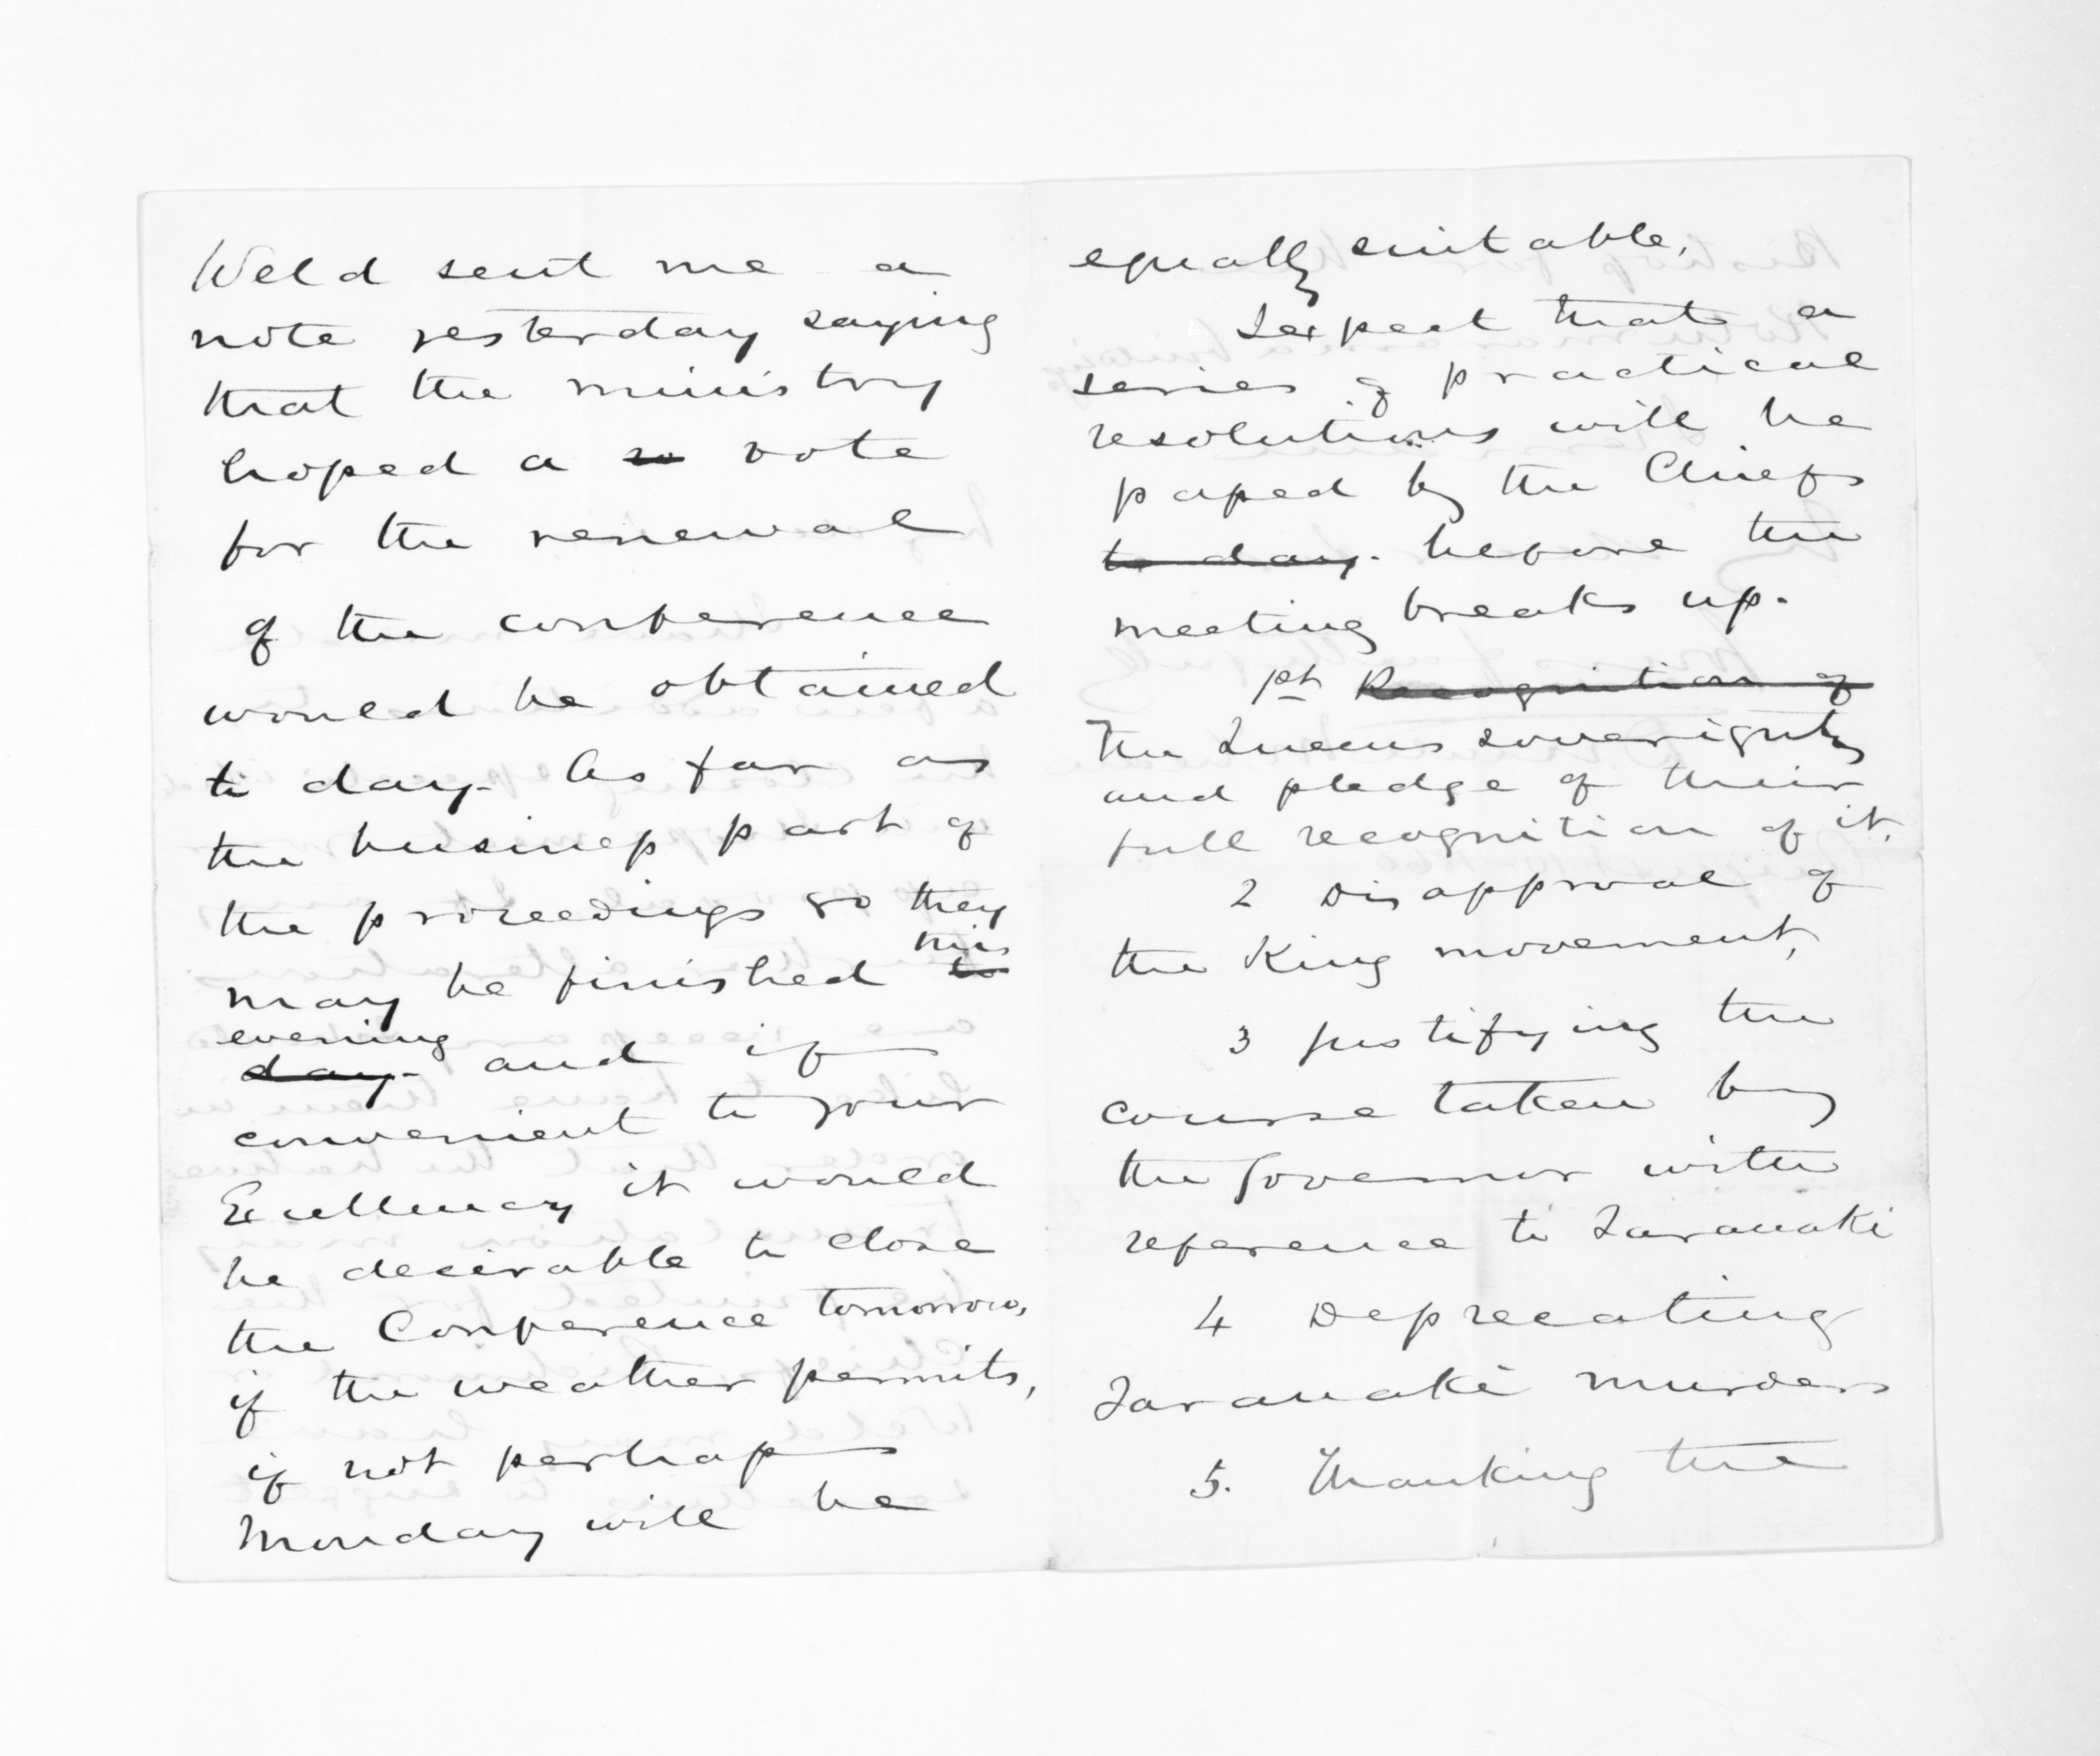 Weld sent me a
note yesterday saying
that the ministry
hoped a vote
for the renewal
of the conference
would be obtained
to day. As far as
the business part of
the proceedings go they
may be finished this
evening
day. and if
convenient to your
Excellency it would
be desirable to close
the Conference tomorrow,
if the weather permits,
if not perhaps
Monday will be
equally suitable.
I expect that a
series of practical
resolutions will be
passed by the Chiefs
to day. before the
meeting breaks up.
1st Recognition of
The Queens soverignty
and pledge of their
full recognition of it.
2 Disapproval of
the King movement,
3 Justifying the
course taken by
the Governor with
reference to Taranaki
4 Deprecating
Taranaki murders
5. Thanking the